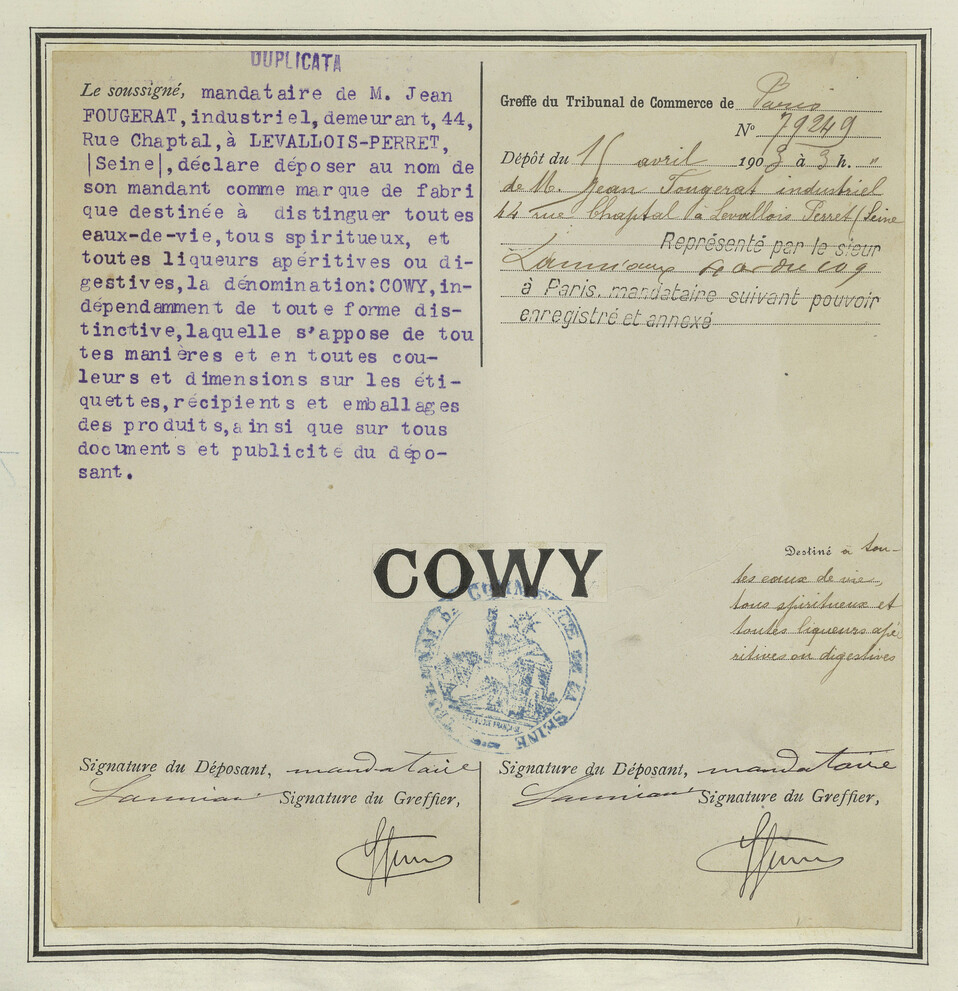 DUPLICATA
Le soussigné, mandataire de M. Jean
FOUGERAT, industriel, demeurant, 44,
Rue Chaptal, à LEVALLOIS-PERRET,
|Seine|, déclare déposer au nom de
son mandant comme marque de fabri
que destinée à distinguer toutes
eaux-de-vie, tous spiritueux, et
toutes liqueurs apéritives ou di-
gestives, la dénomination: COWY, in-
dépendamment de toute forme dis-
tinctive, laquelle s'appose de tou
tes manières et en toutes cou-
leurs et dimensions sur les éti-
quettes, récipients et emballages
des produits, ainsi que sur tous
documents et publicité du dépo-
sant.
Greffe du Tribunal de Commerce de Paris
N° 79249
Dépôt du 15 avril 1903 à 3 h. "
de M. Jean Fougerat industriel
44 rue Chaptal à Levallois Perret (Seine
Représenté par le sieur
à Paris, mandataire suivant pouvoir
enregistré et annexé
COWY
TRIBUNAL DE COMMERCE DE LA SEINE
Destiné à tou-
tes eaux de vie,
tous spiritueux et
toutes liqueurs apé
ritives ou digestives
Signature du Déposant, mandataire
Signature du Greffier,
Signature du Déposant, mandataire
Signature du Greffier,